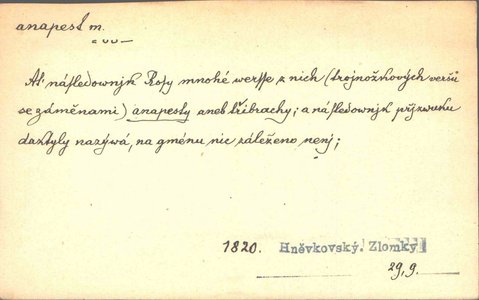 anapest m.
◡◡—
Ať násſledownjk Roſy mnohé werſſe z nich (trojnožkových veršů
se záměnami) anapesty aneb tribrachy; a násſledownjk přjzwuku
daktyly nazýwá, na gménu nic záleženo nenj;
1820. Hněvkovský. Zlomky
29,9.